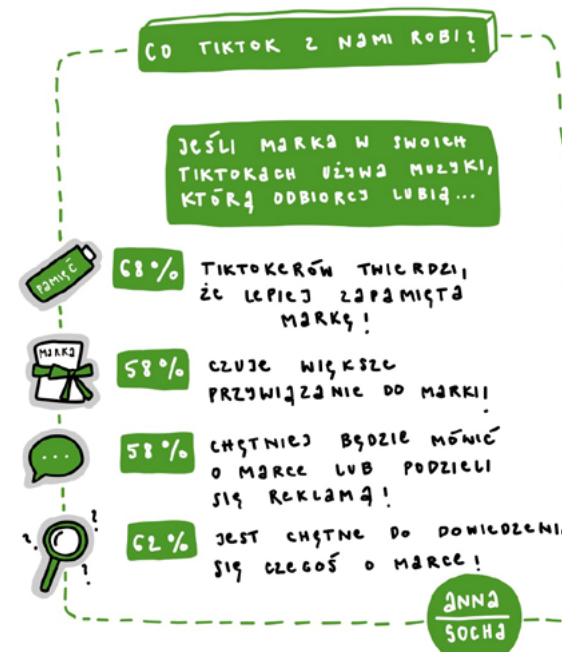 CO TIKTOK Z NAMI ROBI?
JEŚLI MARKA W SWOICH
TIKTOKACH UŻYWA MUZYKI,
KTÓRĄ ODBIORCY LUBIĄ...
PAMIĘĆ
68% TIKTOKERÓW TWIERDZI,
ŻE LEPIEJ ZAPAMIĘTA
MARKĘ!
MARKA
58% CZUJE WIĘKSZE
PRZYWIĄZANIE DO MARKI!
58% CHĘTNIEJ BĘDZIE MÓWIĆ
O MARCE LUB PODZIELI
SIĘ REKLAMĄ!
62% JEST CHĘTNE DO DOWIEDZENI
SIĘ CZEGOŚ O MARCE!
ANNA
SOCHA